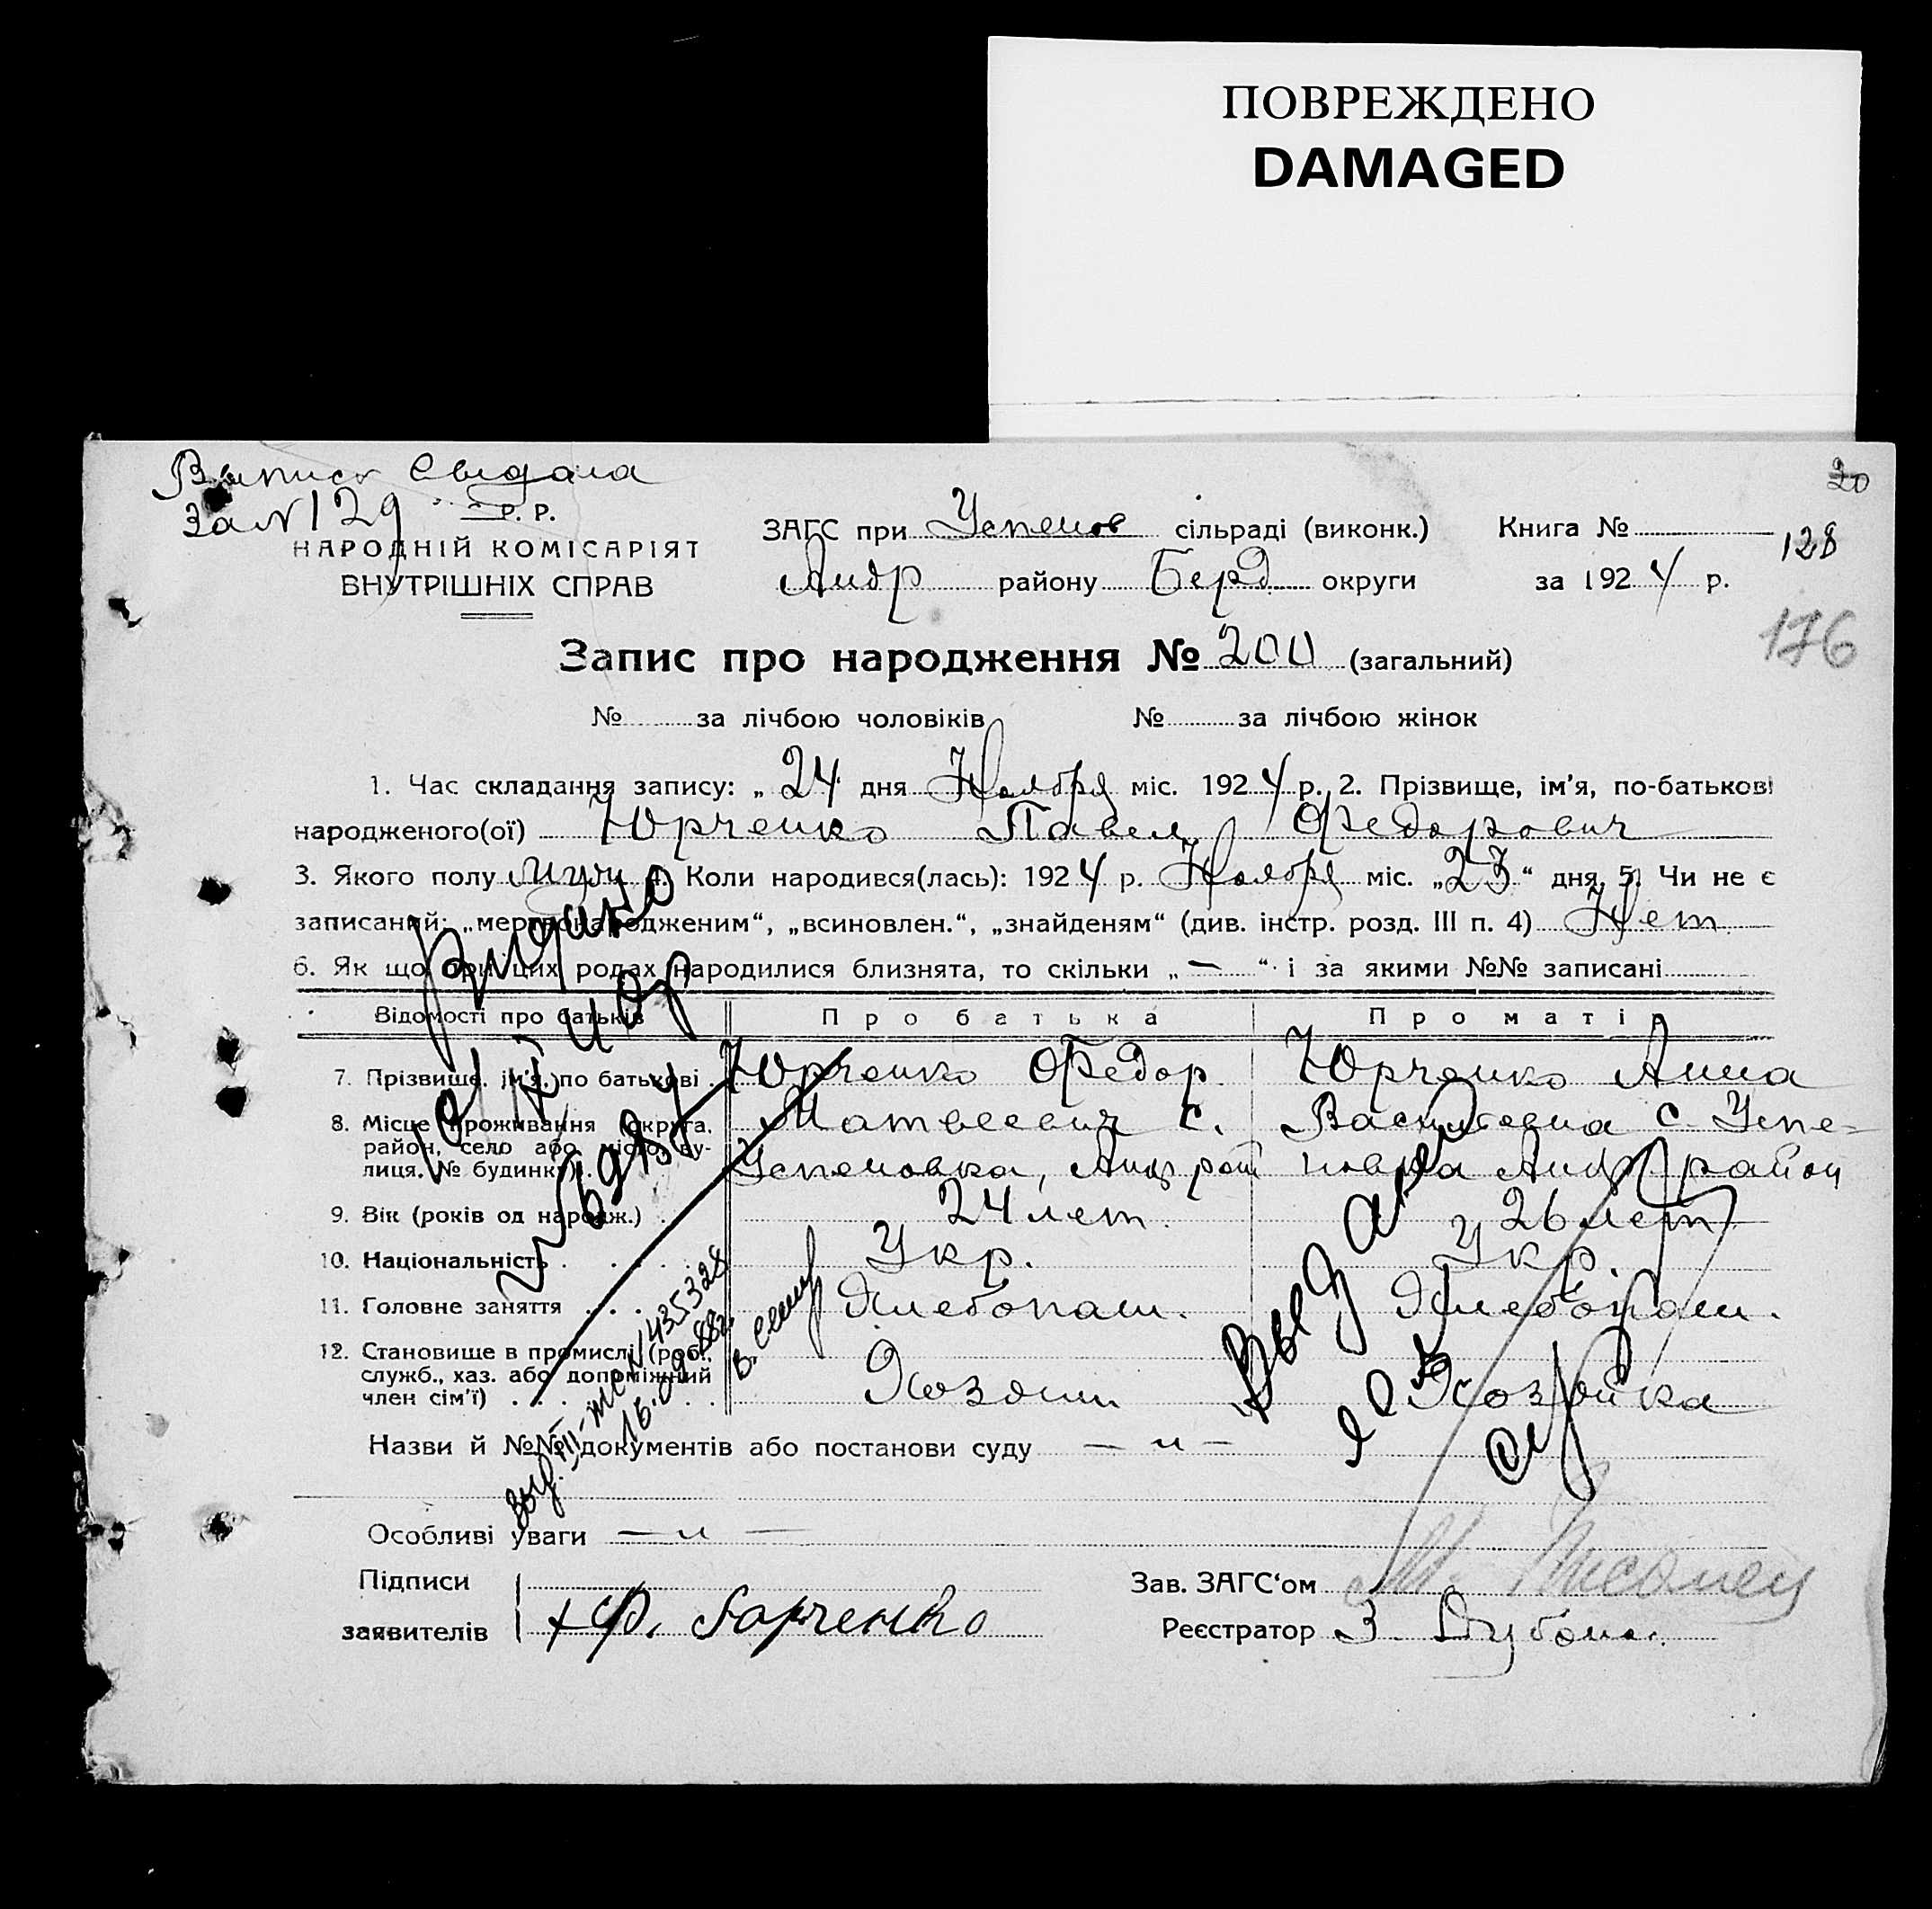 ПОВРЕЖДЕНО
DAMAGED
20
за № 129
Р. Р.
НАРОДНІЙ КОМІСАРІЯТ
ВНУТРІШНІХ СПРАВ
ЗАГС при Успенов сільраді (виконк.) Книга №
128
Андр району Берд. округи за 1924 р.
176
Запис про народження № 200 (загальний)
№ за лічбою чоловіків № за лічбою жінок
1. Час складання запису: „ 24 дня Ноября міс. 1924 р. 2. Прізвище, ім'я, по-батькові
народженого(ої) Юрченко Павел Федорович
3. Якого полу муж 4. Коли народився(лась): 1924 р. Ноября міс. „23“ дня. 5. Чи не є
записаний: „мертвонародженим“, „всиновлен.“, „знайденям“ (див. інстр. розд. III п. 4) Нет
6. Як що при цих родах народилися близнята, то скільки „ — “ і за якими №№ записані
Відомості про батьків Про батька Про матір
7. Прізвище, ім'я, по батькові . Юрченко Федор Юрченко Анна
8. Місце проживання (округа, Матвеевич с. Васильевна с. Успе-
район, село або місто, ву-
лиця, № будинку) Успеновка, Андр рай новка Андр район
9. Вік (років од народж.) . 24 лет. 26 лет
10. Національність . . . . . Укр. Укр.
11. Головне заняття . . . . Хлебопаш. Хлебопаш.
12. Становище в промислі (роб.,
служб., хаз. або допоміжний
член сім'ї) . . . . . Хозяин Хозяйка
Видано
Выдано
№ 435328
Назви й №№ документів або постанови суду — „ —
Особливі уваги — „ —
Підписи
заявителів + Ф. Юрченко
Зав. ЗАГС'ом
Реєстратор З.